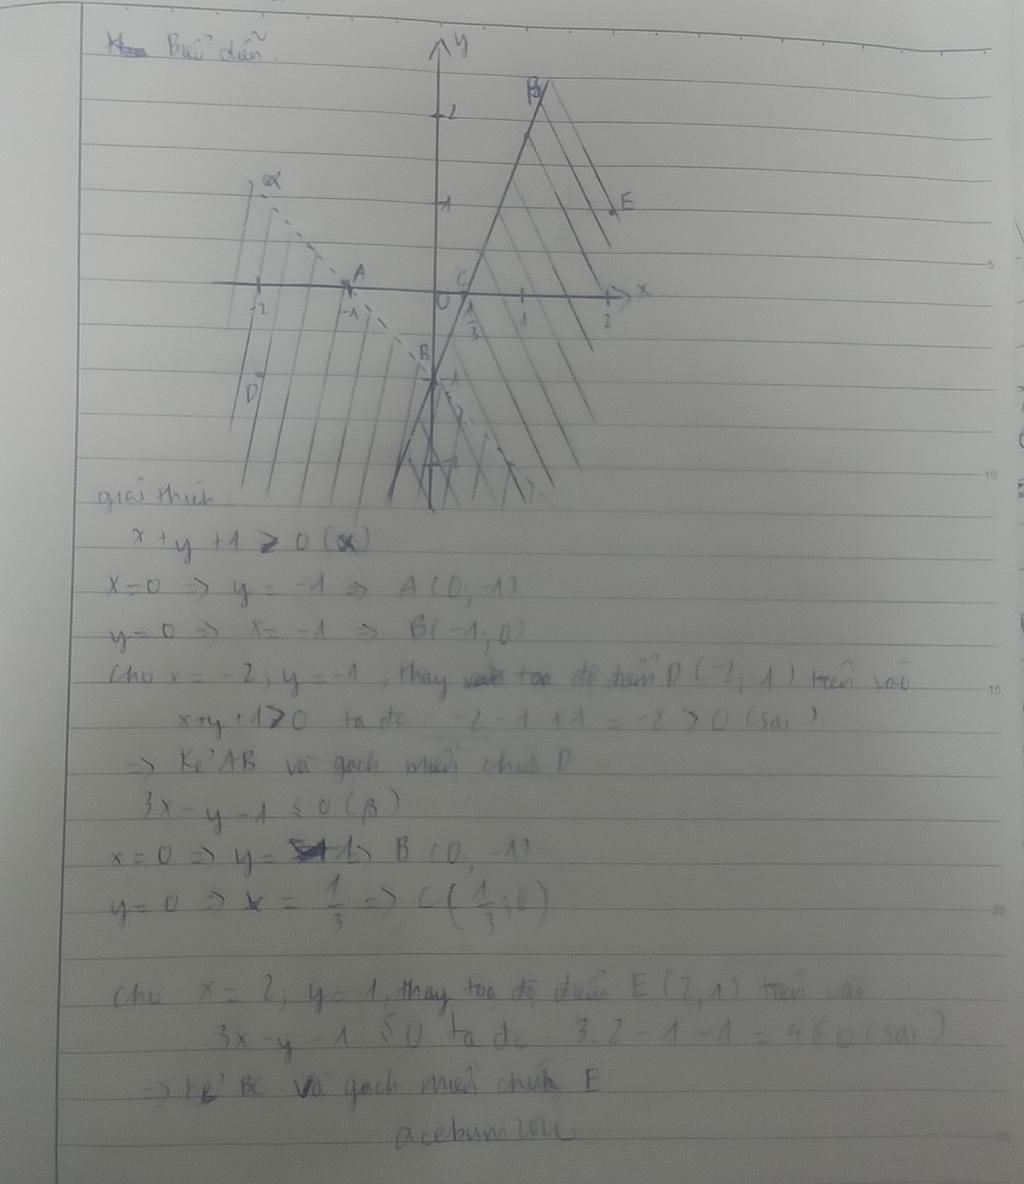 Biểu diễn.
y
β
2
α
E
1
A
C
x
-2
-1
0
1/3
1
2
B
-1
D
giải thích:
x+y+1 > 0 (α)
x=0 => y = -1 => A(0,-1)
y=0 => x = -1 => B(-1,0)
Cho x = -2; y = -1, thay toạ độ điểm D(-2,-1) trên vào
x+y+1>0 ta đc: -2-1+1 = -2 > 0 (sai)
=> Kẻ AB và gạch miền chứa D
3x-y-1 ≤ 0 (β)
x=0 => y = -1 => B(0,-1)
y=0 => x = 1/3 => C(1/3;0)
Cho x = 2; y = 1, thay toạ độ điểm E(2,1) trên vào
3x-y-1 ≤ 0 ta đc. 3.2-1-1 = 4 ≤ 0 (sai)
=> Kẻ BC và gạch miền chứa E